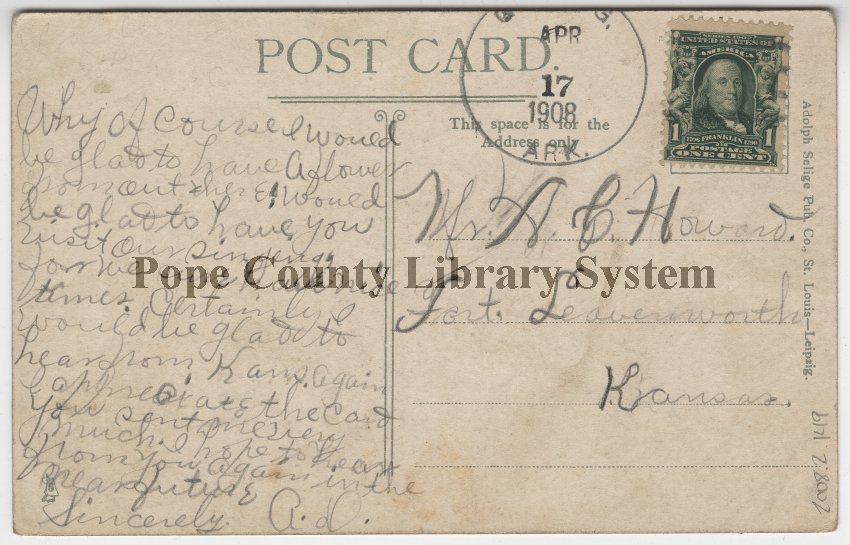 POST CARD.
APR
17
1908
ARK.
SERIES 1902
UNITED STATES OF
AMERICA
1 FRANKLIN 1
POSTAGE
ONE CENT
This space is for the
Address only.
Why of course I would
be glad to have a flower
from out there. I would
be glad to have you
visit our singing
for we
times. Certainly I
would be glad to
hear from Kans. again
I appreciate the card
you sent me very
much. I hope to hear
from you again in the
near future
Sincerely. A.D.
Mr. A. C. Howard.
Fort. Leavenworth
Kansas.
Pope County Library System
Adolph Selige Pub. Co., St. Louis—Leipzig.
2008.2